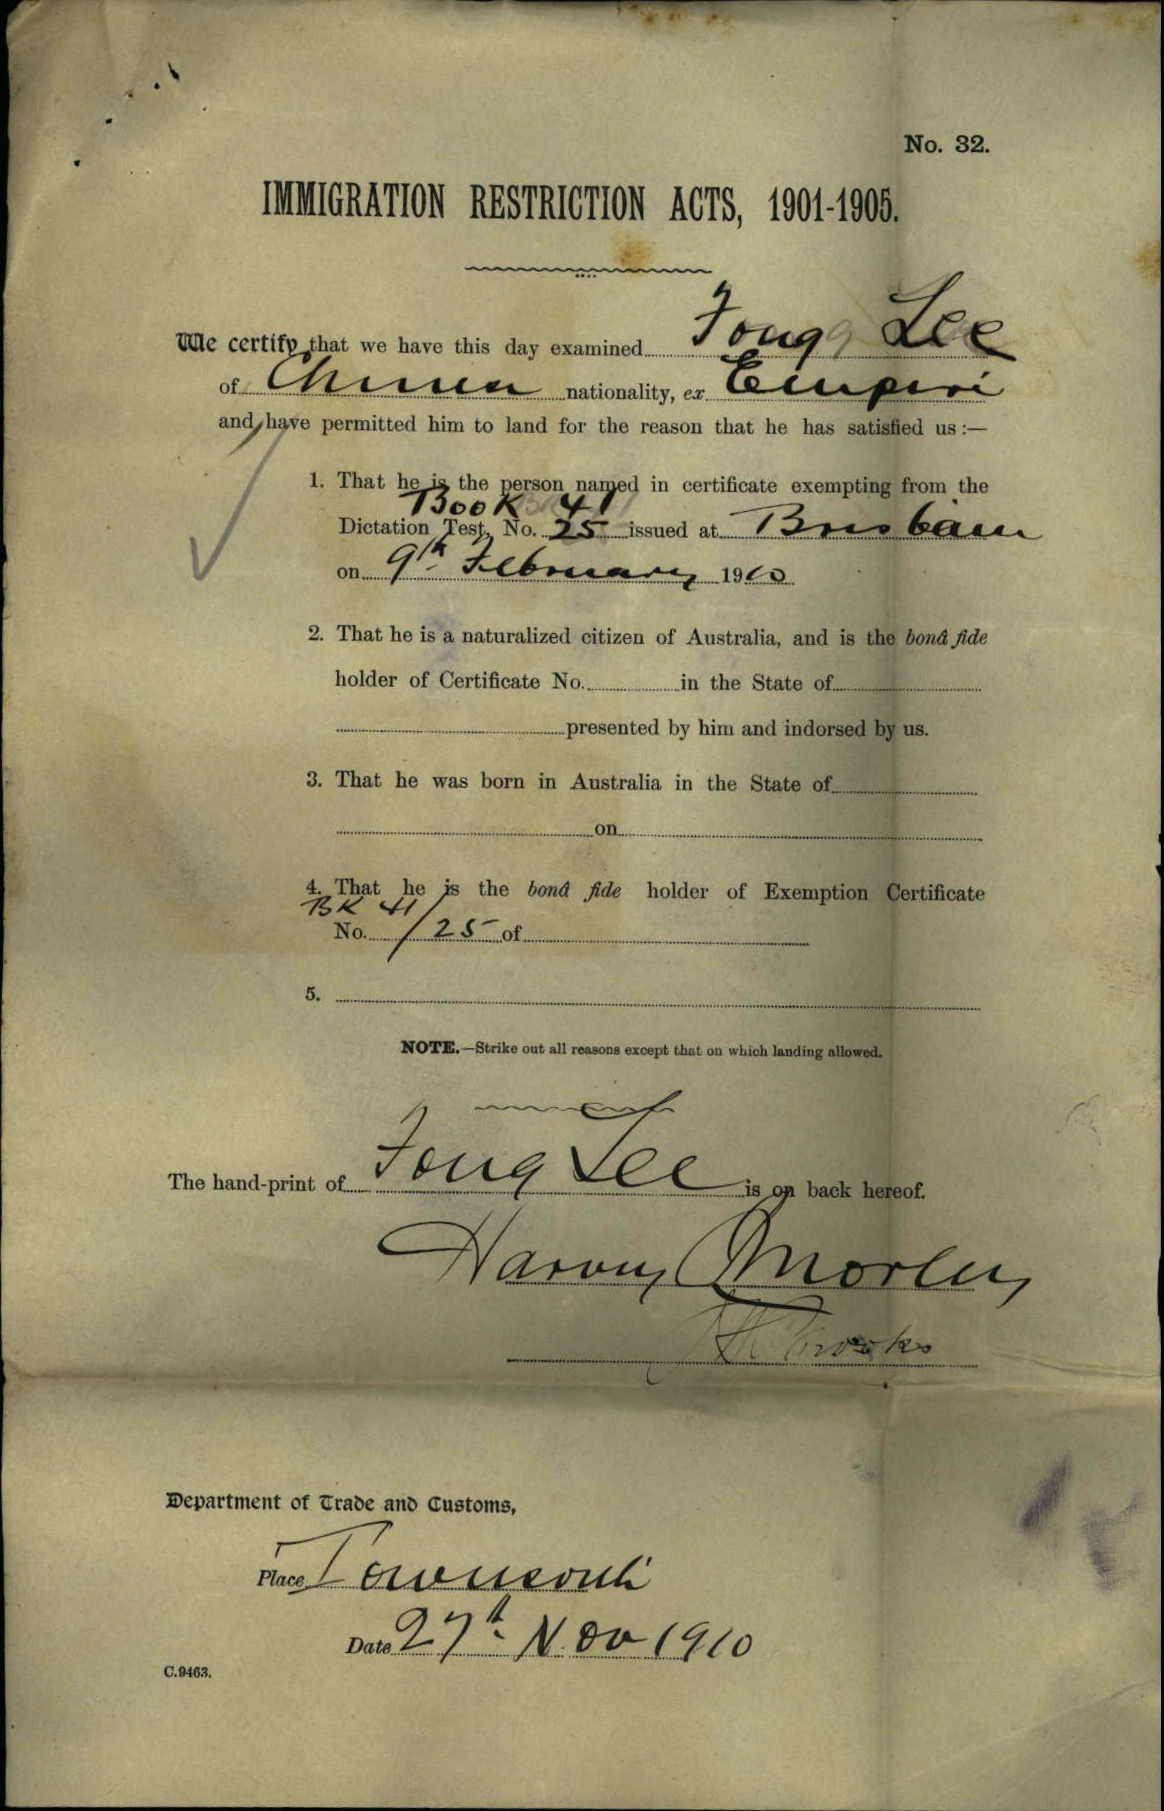 No. 32.
IMMIGRATION RESTRICTION ACTS, 1901-1905.
We certify that we have this day examined Fong Lee
of China nationality, ex Empire
and have permitted him to land for the reason that he has satisfied us :—
1. That he is the person named in certificate exempting from the
Book 41
Dictation Test, No. 25 issued at Brisbane
on 9th February 1910
2. That he is a naturalized citizen of Australia, and is the bonâ fide
holder of Certificate No. in the State of
presented by him and indorsed by us.
3. That he was born in Australia in the State of
on
4. That he is the bonâ fide holder of Exemption Certificate
BK 41
No. / 25 of
5.
NOTE.—Strike out all reasons except that on which landing allowed.
The hand-print of Fong Lee is on back hereof.
Harvey Morley
Brooks
Department of Trade and Customs,
Place Townsville
Date 27th Nov 1910
C.9463.